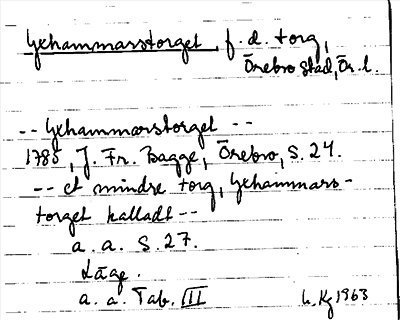 Gehammarstorget, f. d. torg,
Örebro stad, Ör. l.
-- Gehammarstorget --
1785, J. Fr. Bagge, Örebro, S. 24.
-- et mindre torg, Gehammars-
torget kalladt --
a. a. S. 27.
Läge.
a. a. Tab. III
L. Kg 1963